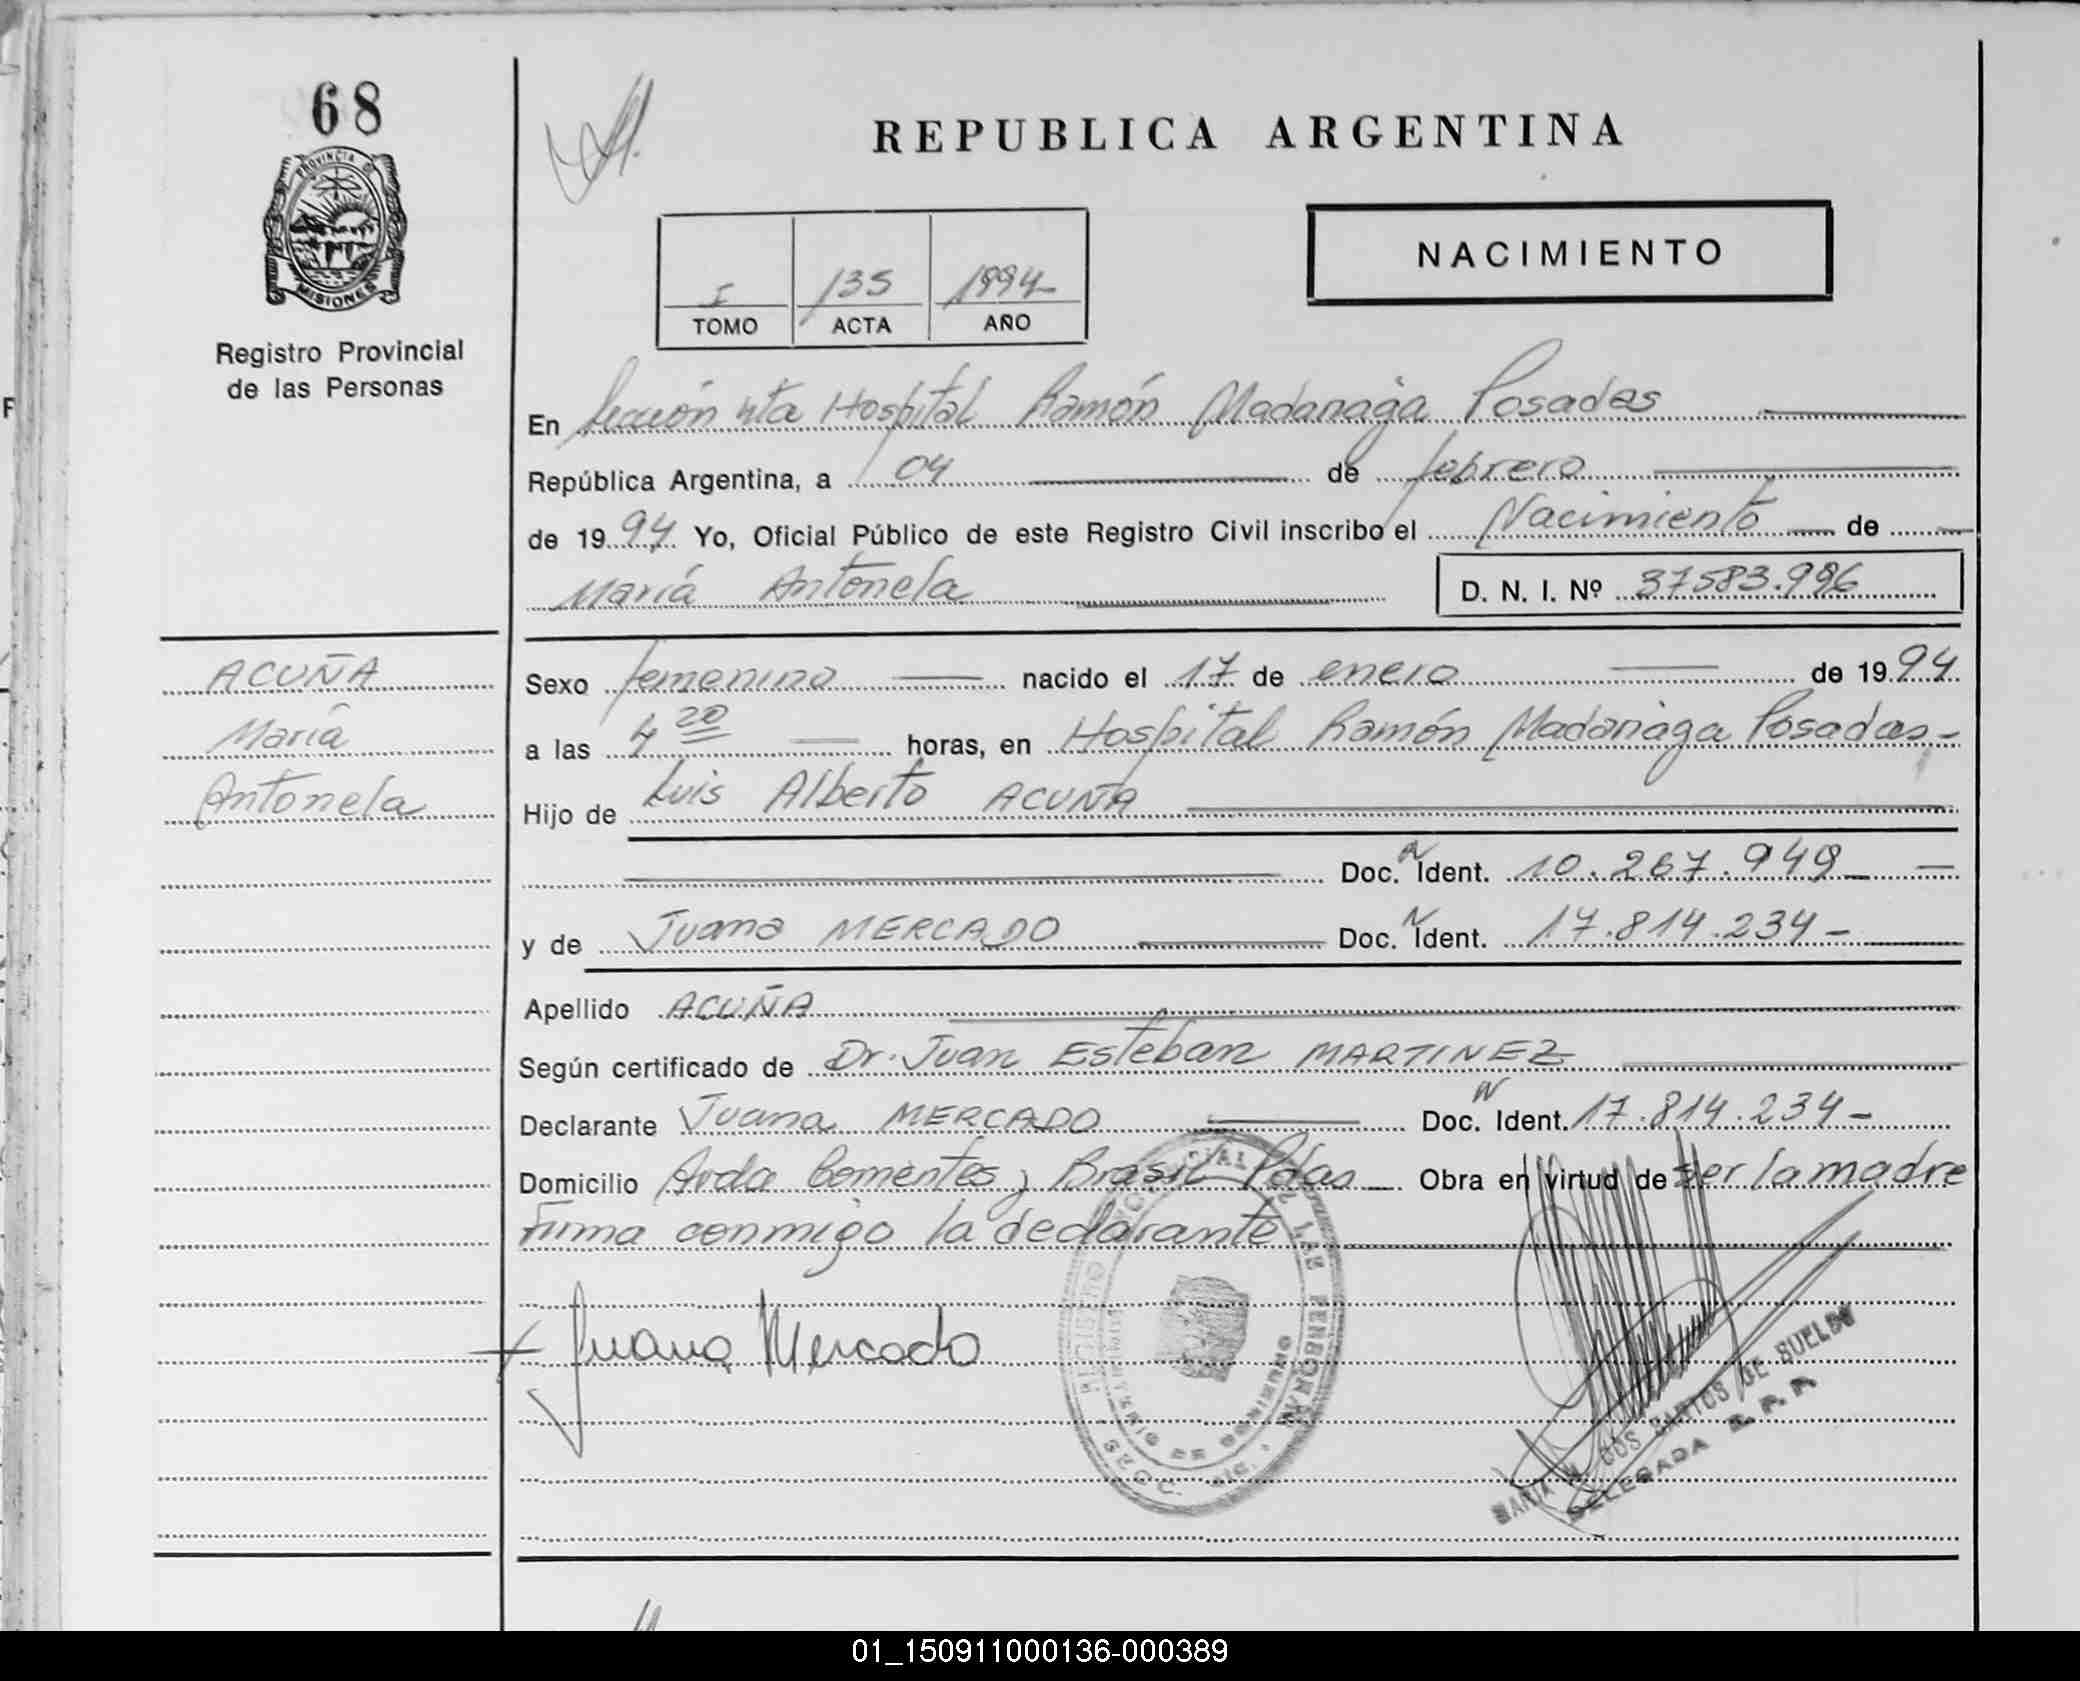 68
PROVINCIA D
MISIONES
Registro Provincial
de las Personas
REPUBLICA ARGENTINA
NACIMIENTO
I 135 1994
TOMO ACTA AÑO
En Sección 4ta Hospital Ramón Madariaga Posadas
República Argentina, a 04 de febrero
de 1994 Yo, Oficial Público de este Registro Civil inscribo el Nacimiento de
María Antonela D. N. I. Nº 37583.996
ACUÑA
María
Antonela
Sexo femenino nacido el 17 de enero de 1994
a las 4 20 horas, en Hospital Ramón Madariaga Posadas-
Hijo de Luis Alberto ACUÑA
Doc. N Ident. 10.267.949
y de Juana MERCADO Doc. N Ident. 17.814.234-
Apellido ACUÑA
Según certificado de Dr. Juan Esteban MARTINEZ
Declarante Juana MERCADO Doc. N Ident. 17.814.234-
Domicilio Avda Corrientes y Brasil Pdas Obra en virtud de ser la madre
Firma conmigo la declarante
Juana Mercado
REGISTRO PROVINCIAL DE LAS PERSONAS
MINISTERIO DE GOBIERNO
MARIA DOS SANTOS DE
DELEGADA R.P.P.
01_150911000136-000389